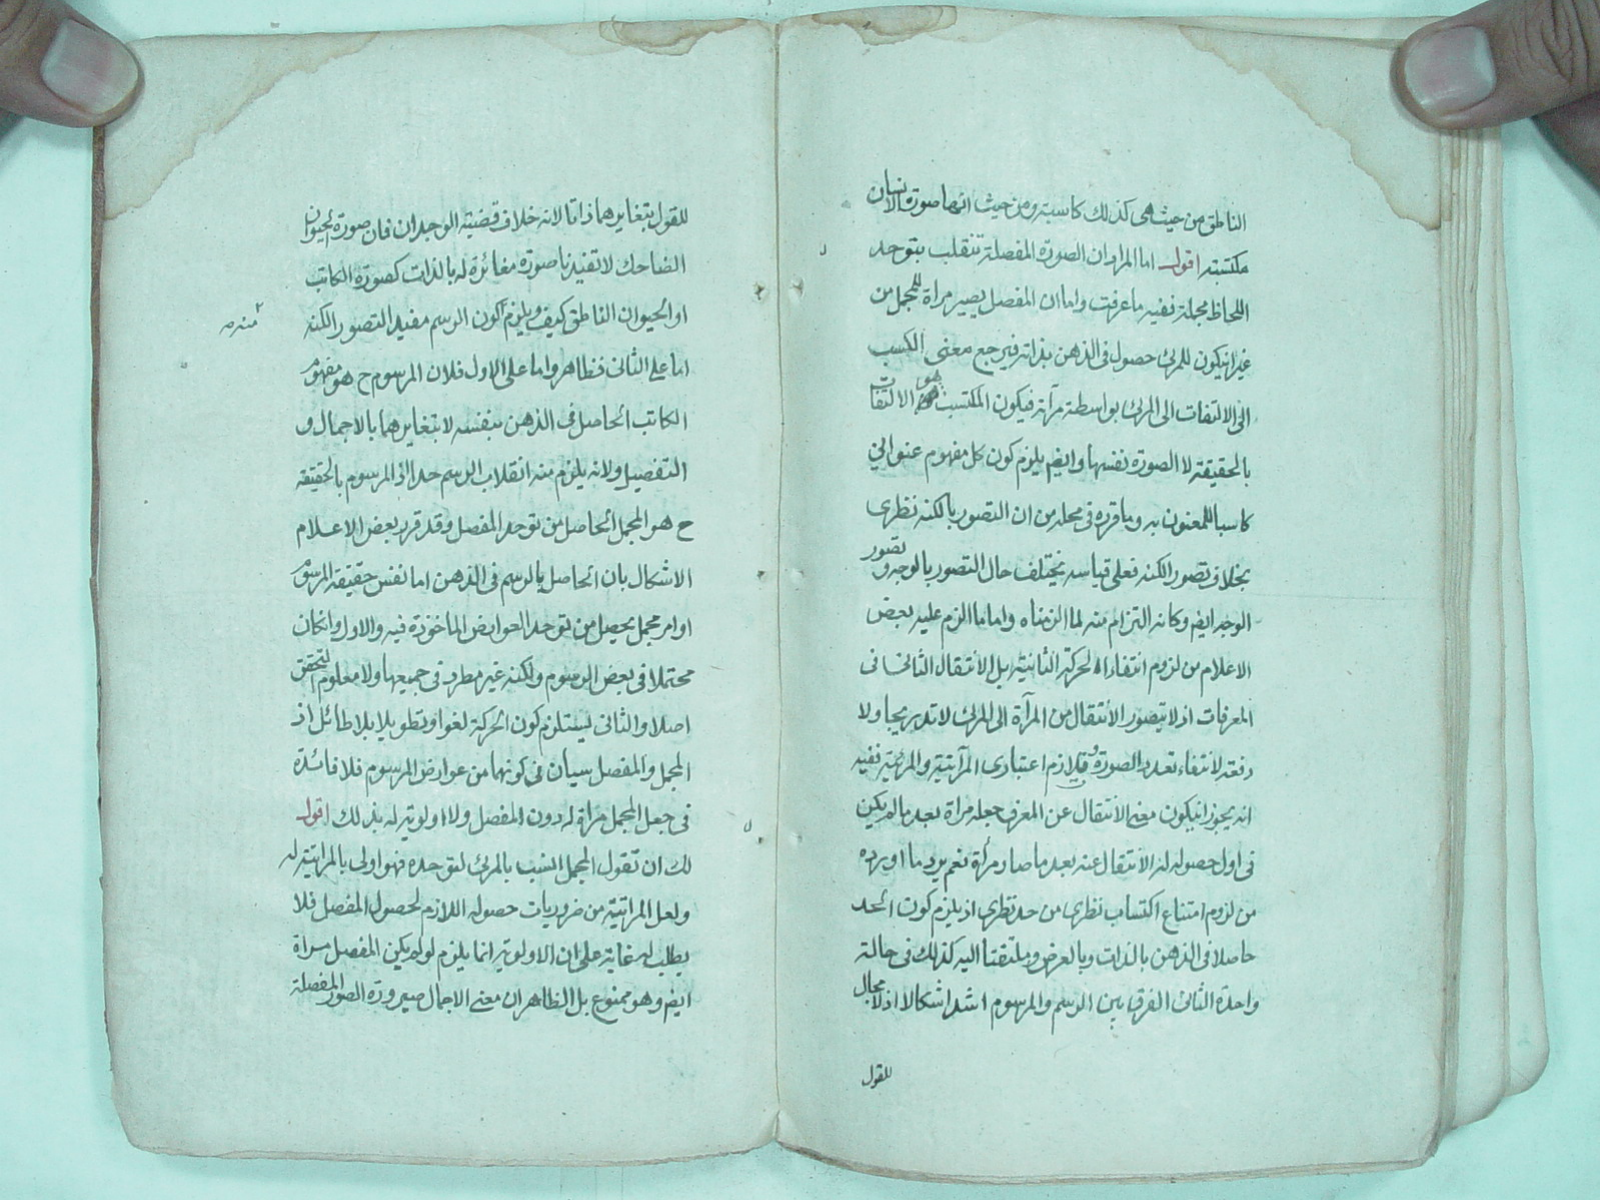 الناطق من حيث هى كذلك كاسبة ومن حيث انها صورة الانسان
مكتسبة اقول اما المراد ان الصورة المفصلة تنقلب بتوحد
اللحاظ مجملة ففيه ما عرفت واما ان المفصل يصير مراة للمجمل من
غير ان يكون للمرئ حصول فى الذهن بذاته فيرجع معنى الكسب
الى الالتفات الى المرئ بواسطة مرآته فيكون المكتسب هو الالتفات
بالحقيقة لا الصورة نفسها وايضم يلزم كون كل مفهوم عنوانى
كاسبا للمعنون به وما قرره فى محله من ان التصور بالكنه نظرى
بخلاف تصور الكنه فعلى قياسه يختلف حال التصور بالوجه وتصور
الوجه ايضم وكانه التزام منه لما الزمناه واما ما الزم عليه بعض
الاعلام من لزوم انتفاء الحركة الثانية بل الانتقال الثانى فى
المعرفات اذ لا يتصور الأنتقال من المرآة الى المرئ لا تدريجا ولا
دفعة لانتفاء تعدد الصورة اعتبارى المرآتية والمرئية ففيه
انه يجوز ان يكون معنى الأنتقال عن المعرف جعله مراة بعد ما لم يكن
فى اول حصوله لا الأنتقال عنه بعد ما صار مرأة نعم يرد ما اورده
من لزوم امتناع اكتساب نظرى من حد نظرى اذ يلزم كون الحد
حاصلا فى الذهن بالذات وبالعرض وملتفتا اليه كذلك فى حالة
واحدة الثانى الفرق بين الرسم والمرسوم اشد اشكالا اذ لا مجال
للقول
للقول بتغايرهما ذاتا لانه خلاف قضية الوجدان فان صورة الحيوان
الضاحك لا تفيدنا صورة مغائرة له بالذات كصورة الكاتب
او الحيوان الناطق كيف ويلزم كون الرسم مفيد التصور الكنه
منه
اما على الثانى فظاهر واما على الاول فلان المرسوم ح هو مفهوم
الكاتب الحاصل فى الذهن بنفسه لا بتغايرهما بالاجمال و
التفصيل ولانه يلزم منه انقلاب الرسم حدا اذ المرسوم بالحقيقة
ح هو المجمل الحاصل من توحد المفصل وقد قرر بعض الاعلام
الاشكال بان الحاصل بالرسم فى الذهن اما نفس حقيقة المرسوم
او امر مجمل يحصل من توحد العوارض الماخوذة فيه والاول وان كان
محتملا فى بعض الرسوم ولكنه غير مطرد فى جميعها ولا معلوم التحقق
اصلا والثانى يستلزم كون الحركة لغوا وتطويلا بلا طائل اذ
المجمل والمفصل سيان فى كونهما من عوارض المرسوم فلا فائدة
فى جعل المجمل مراة له دون المفصل ولا اولوية له بذلك اقول
لك ان تقول المجمل انسب بالمرئ لتوحده فهو اولى بالمراتية له
ولعل المراتية من ضروريات حصوله اللازم لحصول المفصل فلا
يطلب له غاية على ان الاولوية انما يلزم لو لم يكن المفصل مراة
ايضم وهو ممنوع بل الظاهر ان معنى الاجمال صيرورة الصور المفصلة